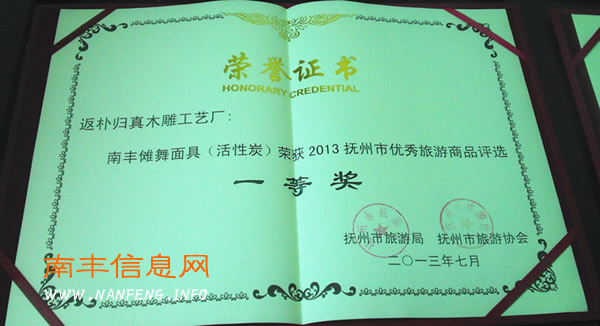 荣誉证书
HONORARY CREDENTIAL
返朴归真木雕工艺厂：
南丰傩舞面具（活性炭）荣获2013抚州市优秀旅游商品评选
一等奖
抚州市旅游局 抚州市旅游协会
二〇一三年七月
南丰信息网
WWW.NANFENG.INFO